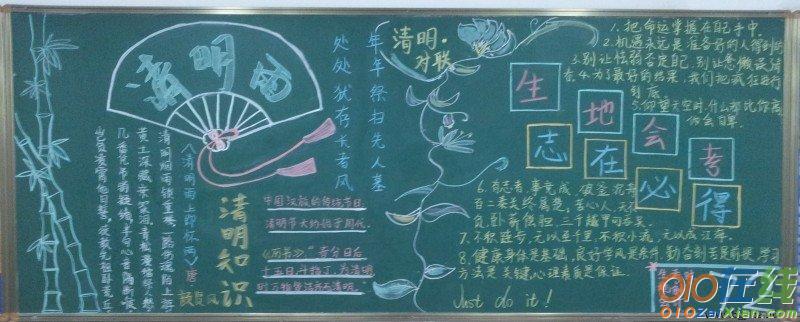 清明节
年年祭扫先人墓
处处犹存长者风
清明·
对联
八清明雨上即怀两〉唐
清明知识
中国汉族的传统节日
清明节大约始于周代
《历书》“春分日后
十五日，斗指丁，为清明
时万物皆洁齐而清明。
1.把命运掌握在自己手中.
2.机遇永远是准备好的人得到的
3.别让怯弱否定自己，别让惫懒误终
4.为了最好的结果，我们把疯狂进行
到底.
5.仰望天空时，什么都比你高
你会自卑.
生地会考
志在必得
6.有志者，事竟成，破釜沉舟
百二秦关终属楚，苦心人，天不
负，卧薪偿胆，三千越甲可吞吴.
7.不积跬步，无以至千里，不积小流，无以成江海.
8.健康身体是基础，良好学风是条件，勤奋刻苦是前提，学习
方法是关键，心理素质是保证.
Just do it!
010在线
010ZaiXian.com